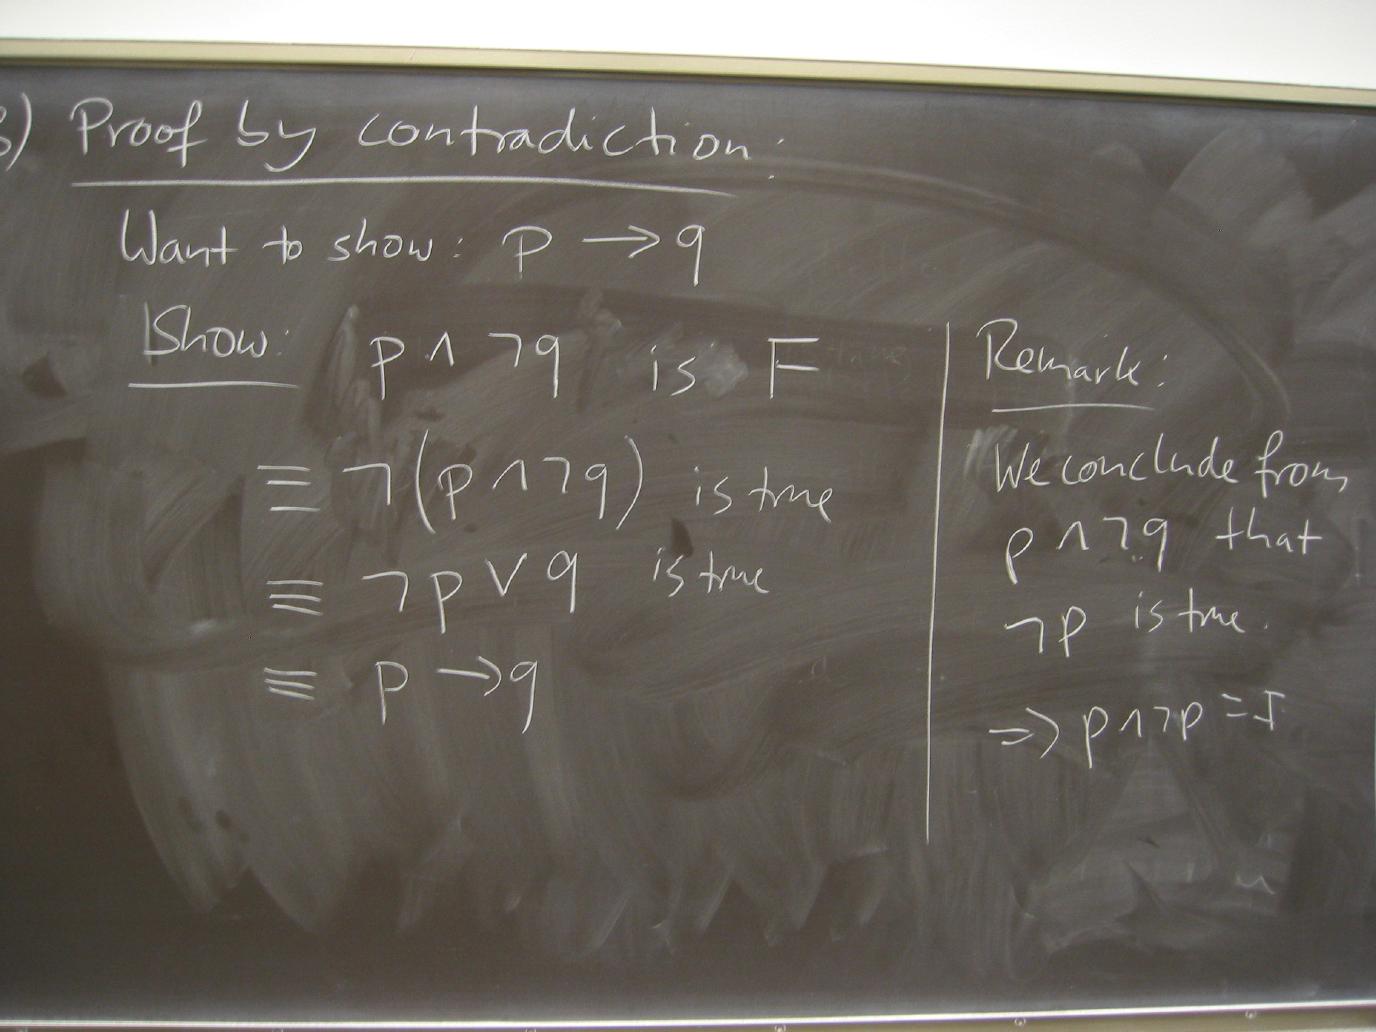 3) Proof by contradiction:
Want to show: p → q
Show: p ∧ ¬q is F
≡ ¬(p ∧ ¬q) is true
≡ ¬p ∨ q is true
≡ p → q
Remark:
We conclude from
p ∧ ¬q that
¬p is true.
⇒ p ∧ ¬p = F